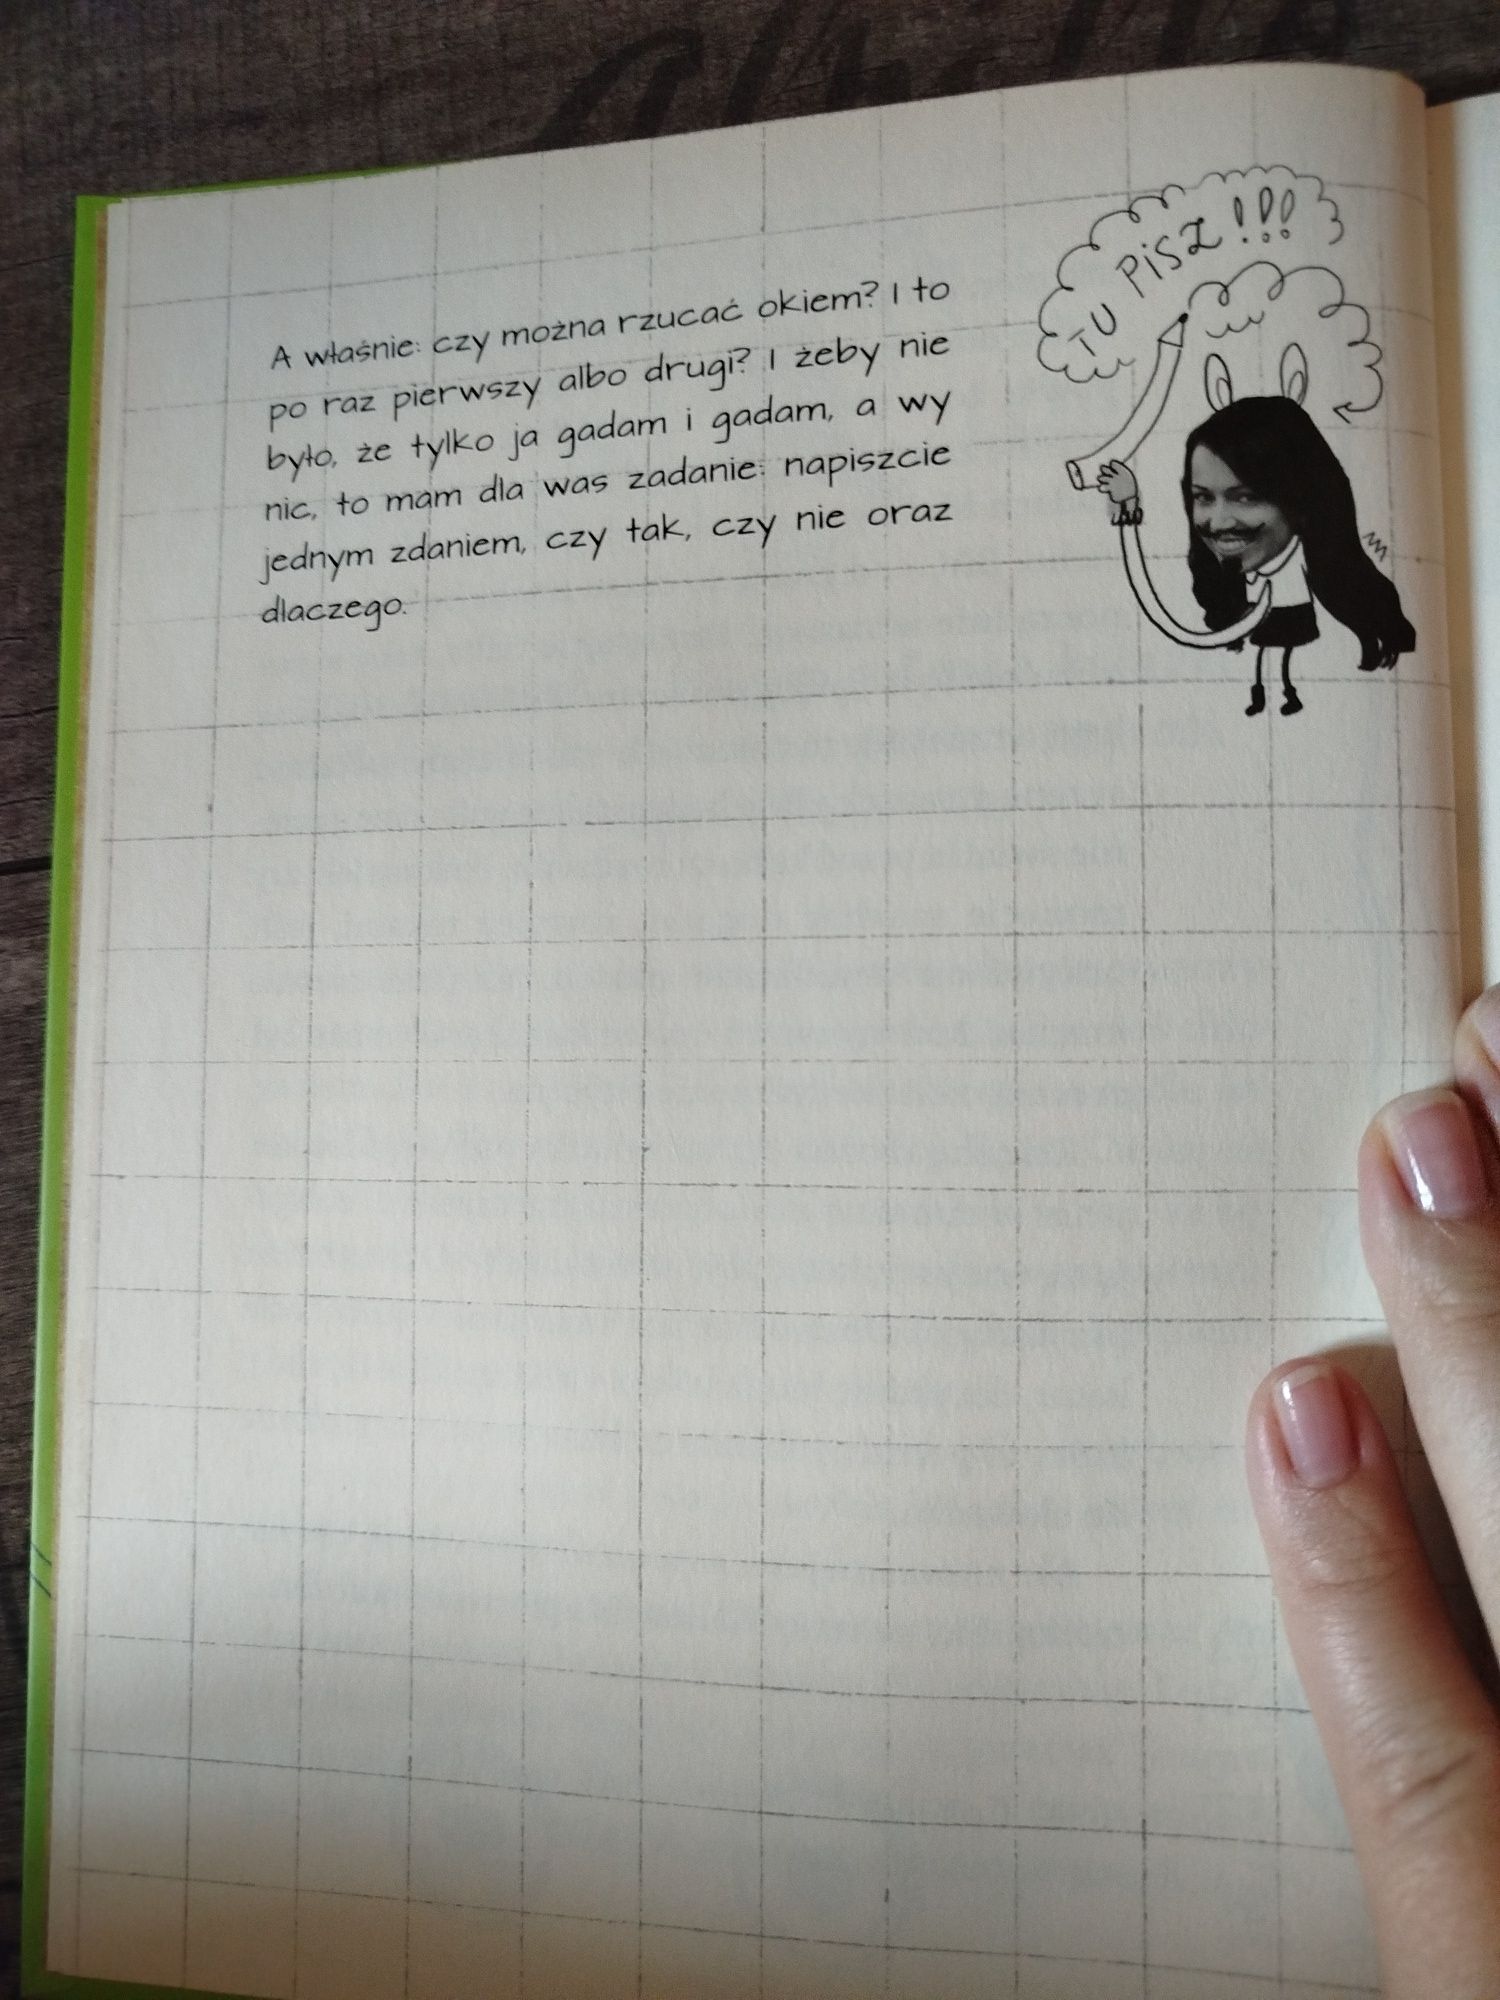 TU PISZ!!!
A właśnie: czy można rzucać okiem? I to
po raz pierwszy albo drugi? I żeby nie
było, że tylko ja gadam i gadam, a wy
nic, to mam dla was zadanie: napiszcie
jednym zdaniem, czy tak, czy nie oraz
dlaczego.